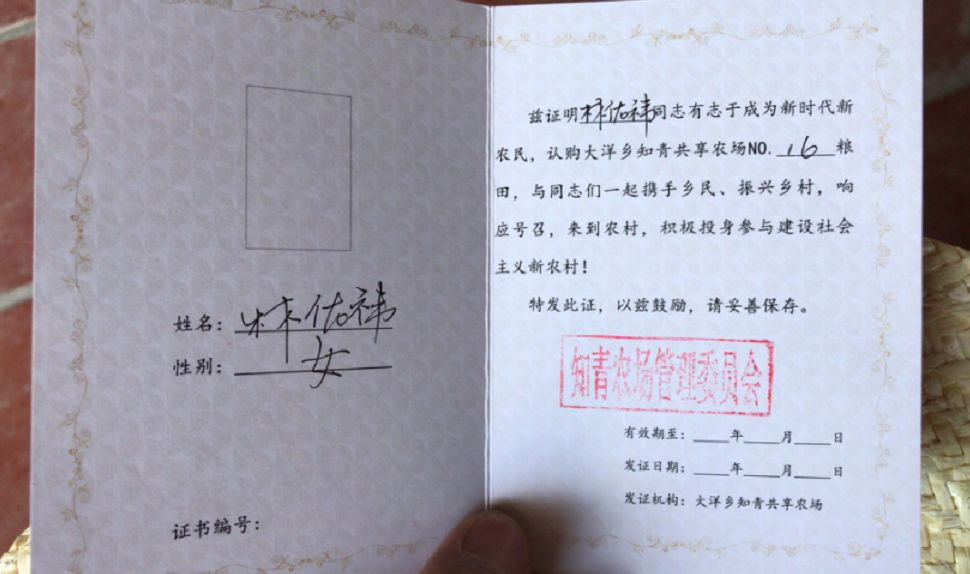 姓名：林佑祎
性别：女
证书编号：
兹证明林佑祎同志有志于成为新时代新
农民，认购大洋乡知青共享农场NO.16粮
田，与同志们一起携手乡民、振兴乡村，响
应号召，来到农村，积极投身参与建设社会
主义新农村！
特发此证，以兹鼓励，请妥善保存。
知青农场管理委员会
有效期至：____年____月____日
发证日期：____年____月____日
发证机构：大洋乡知青共享农场